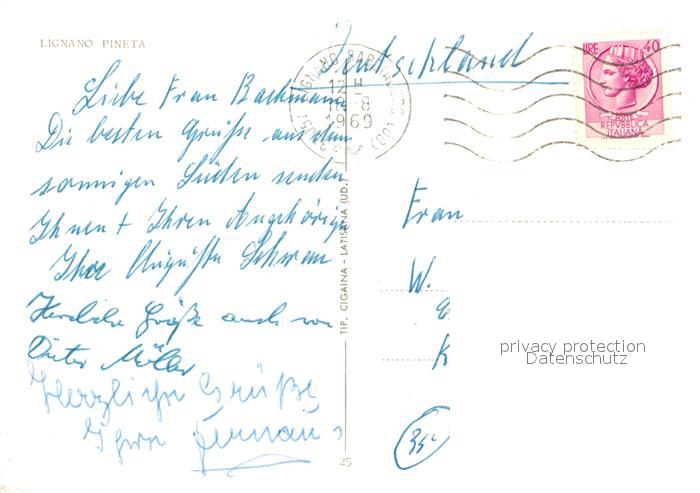 LIGNANO PINETA
Deutschland
LIGNANO SABBIADORO
12-H
8
1969
LIRE 40
POSTE
REPVBBLICA
ITALIANA
Liebe Frau Bachmann
Die besten Grüße aus dem
sonnigen Süden senden
Ihnen + Ihren Angehörigen
Ihre Auguste Schwan
Herzliche Grüße auch von
Dieter Müller
Herzliche Grüße
Ihre
TIP. CIGAINA - LATISANA (UD.)
25
Frau
W.
K
privacy protection
Datenschutz